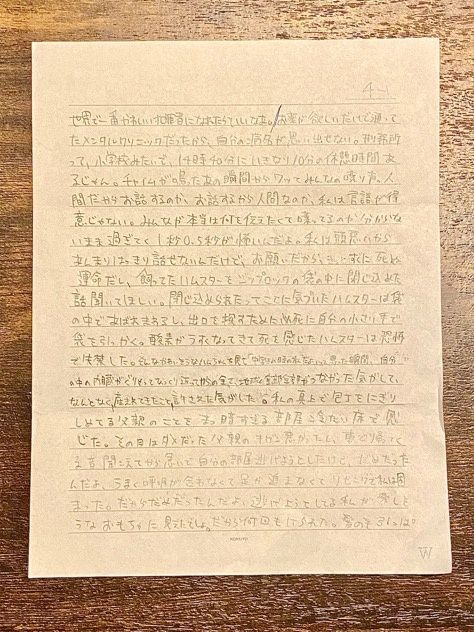 4-1
世界で一番かわいい犯罪者になれたらいいなあ。薬が欲しいだけで通って
たメンタルクリニックだったから、自分の病名が思い出せない。刑務所
って、小学校みたいで、14時40分にいきなり10分の休憩時間あ
るじゃん。チャイムが鳴ったあの瞬間からワッてみんなの喋り声。人
間だからお話するのか、お話するから人間なのか、私は言語が得
意じゃない。みんなが本当は何て伝えたくて喋ってるのか分からな
いまま過ぎてく1秒0.5秒が怖いんだよ。私は頭悪いから
あんまりはっきり話せないんだけど、お願いだから、に死ぬ
運命だし、飼ってたハムスターをジップロックの袋の中に閉じ込めた
話聞いてほしい。閉じ込められたってことに気づいたハムスターは袋
の中であばた出口を探すために必死に自分の小さい手で
袋を引っかく。酸素がうすくなってきて死を感じたハムスターは恐怖
で失禁した。そんなかわいそうなハムちゃんを見て思った瞬間、自分
の中の内臓が全て、地球と全部全部つながった気がして、
なんとなく、産まれてきたこと許された気がした。私の真上で包丁をにぎり
しめてる父親のことを、暗すぎる部屋の冷たい床で感
じた。その日はダメだった父親の
る音聞こえてから急いで自分の部屋逃げようとしたけど、だめだった
んだよ、うまく呼吸が合わなくて足が進まなくてリビングで私は固
まった。だからだめだったんだよ、逃げようとしてる私が楽しそ
うなおもちゃに見えたでしょ。だから何回も
KOKUYO
W